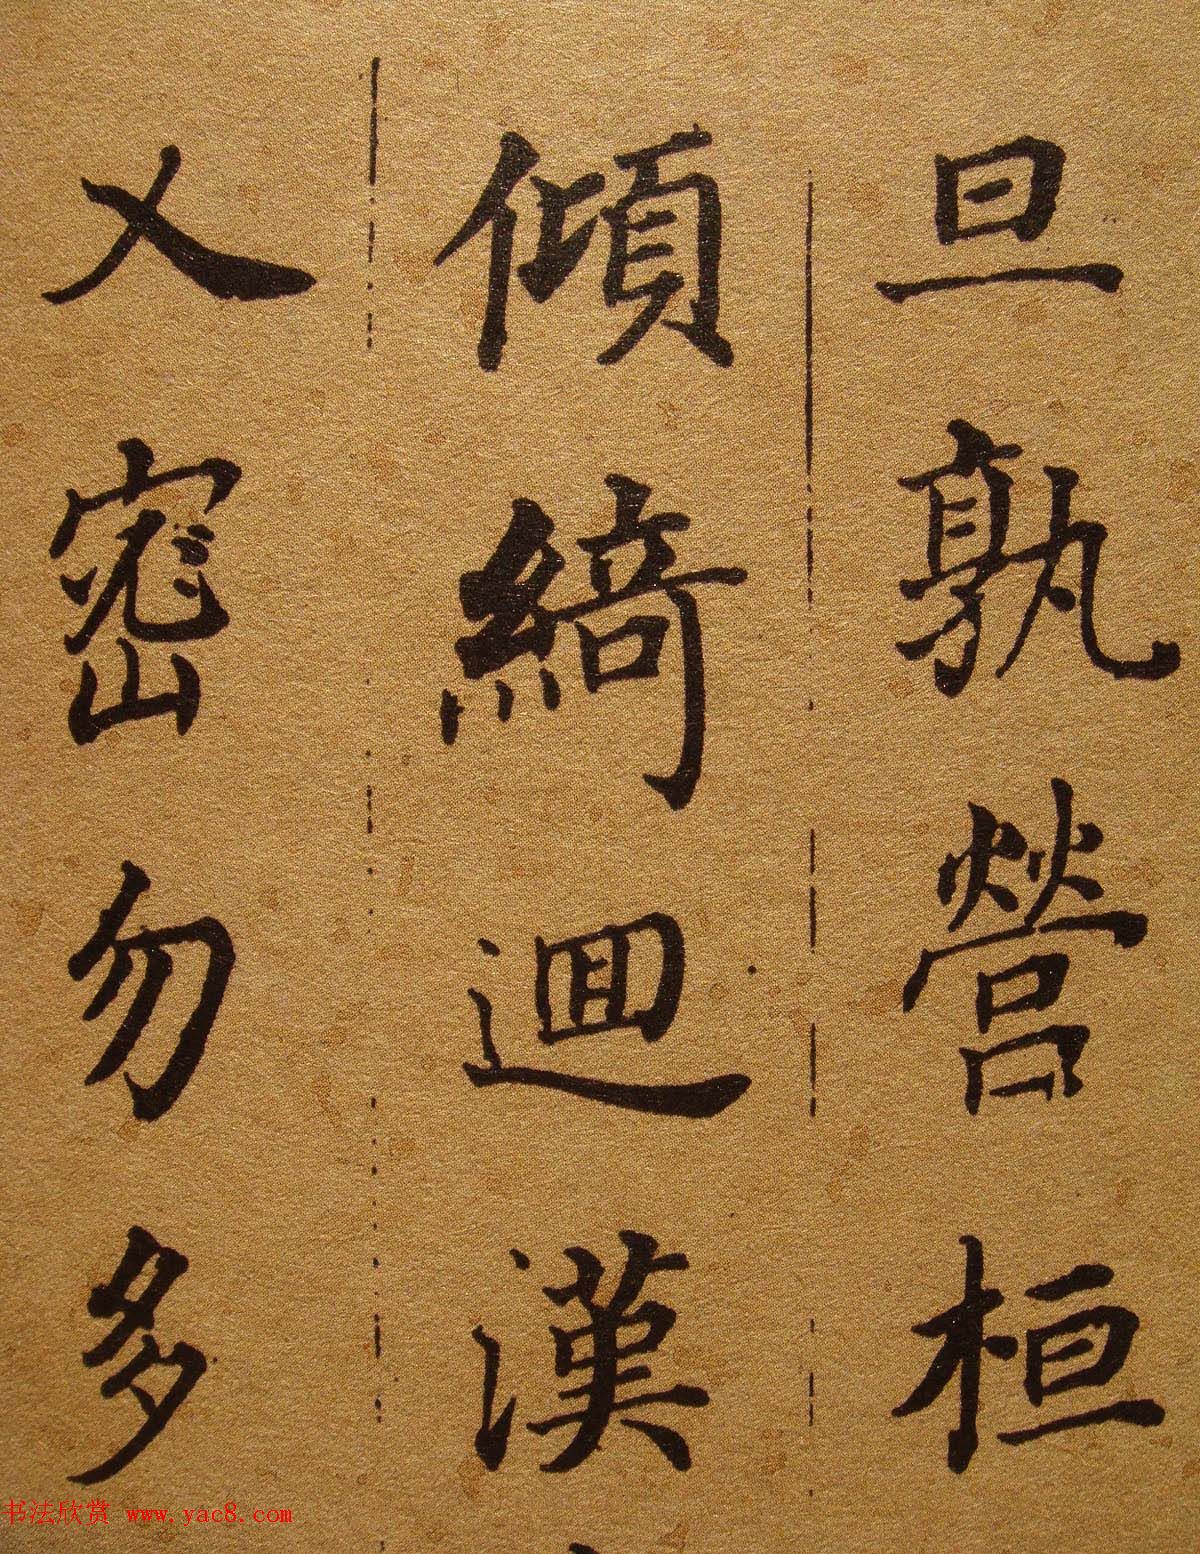 旦孰營桓
傾綺迴漢
乂密勿多
书法欣赏 www.yac8.com